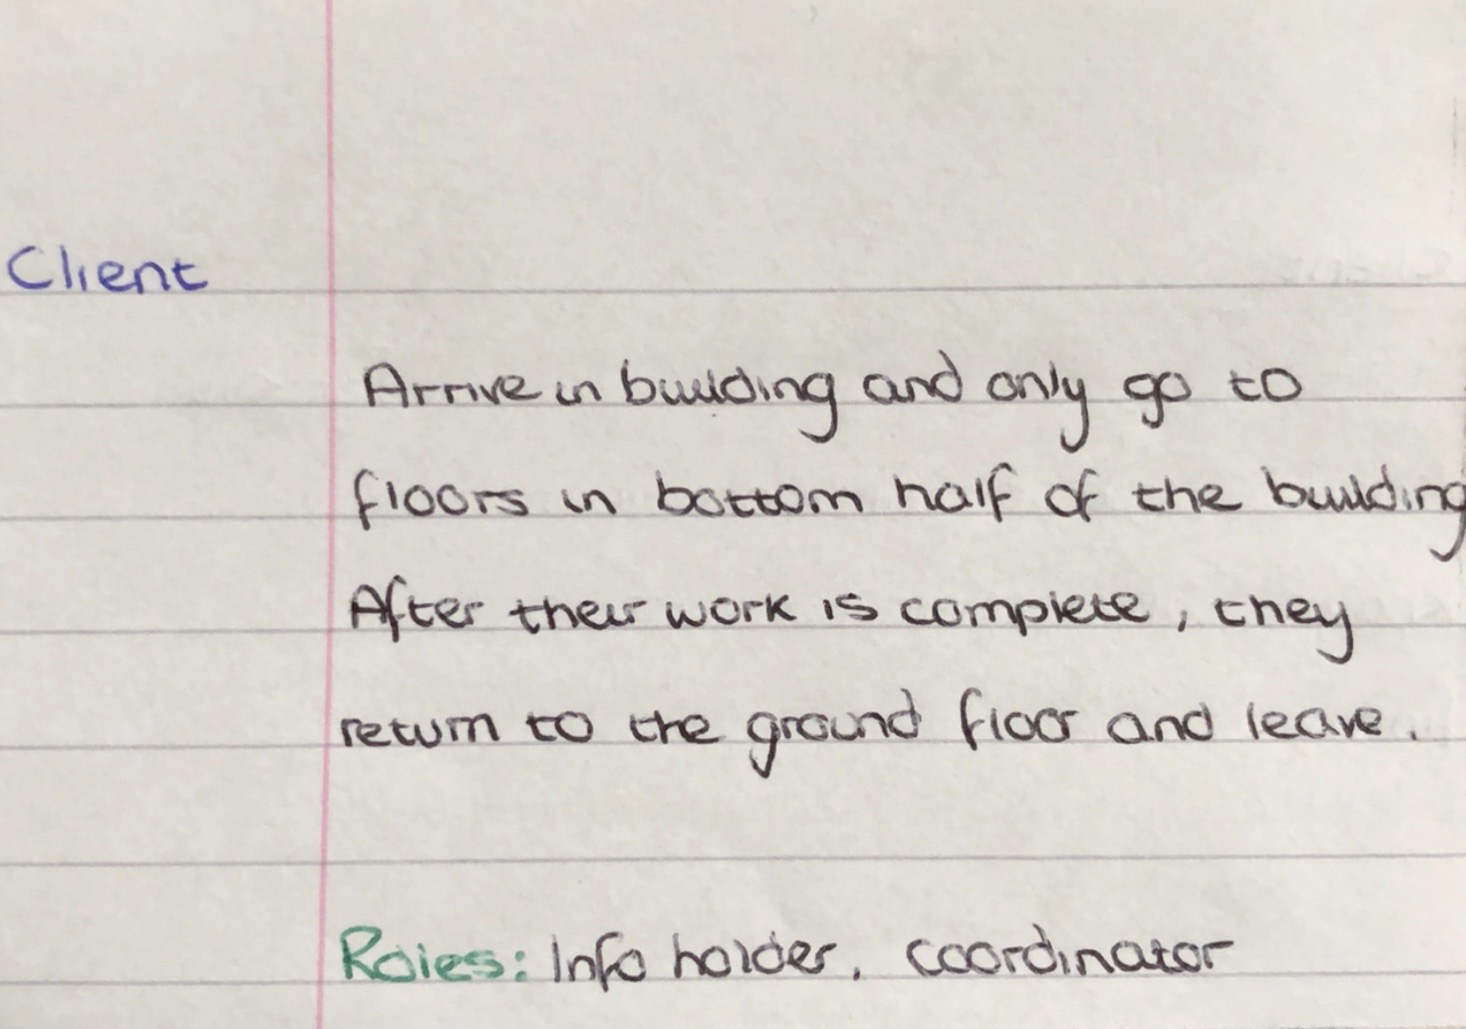 Client
Arrive in building and only go to
floors in bottom half of the building
After their work is complete, they
return to the ground floor and leave.
Roles: Info holder, coordinator